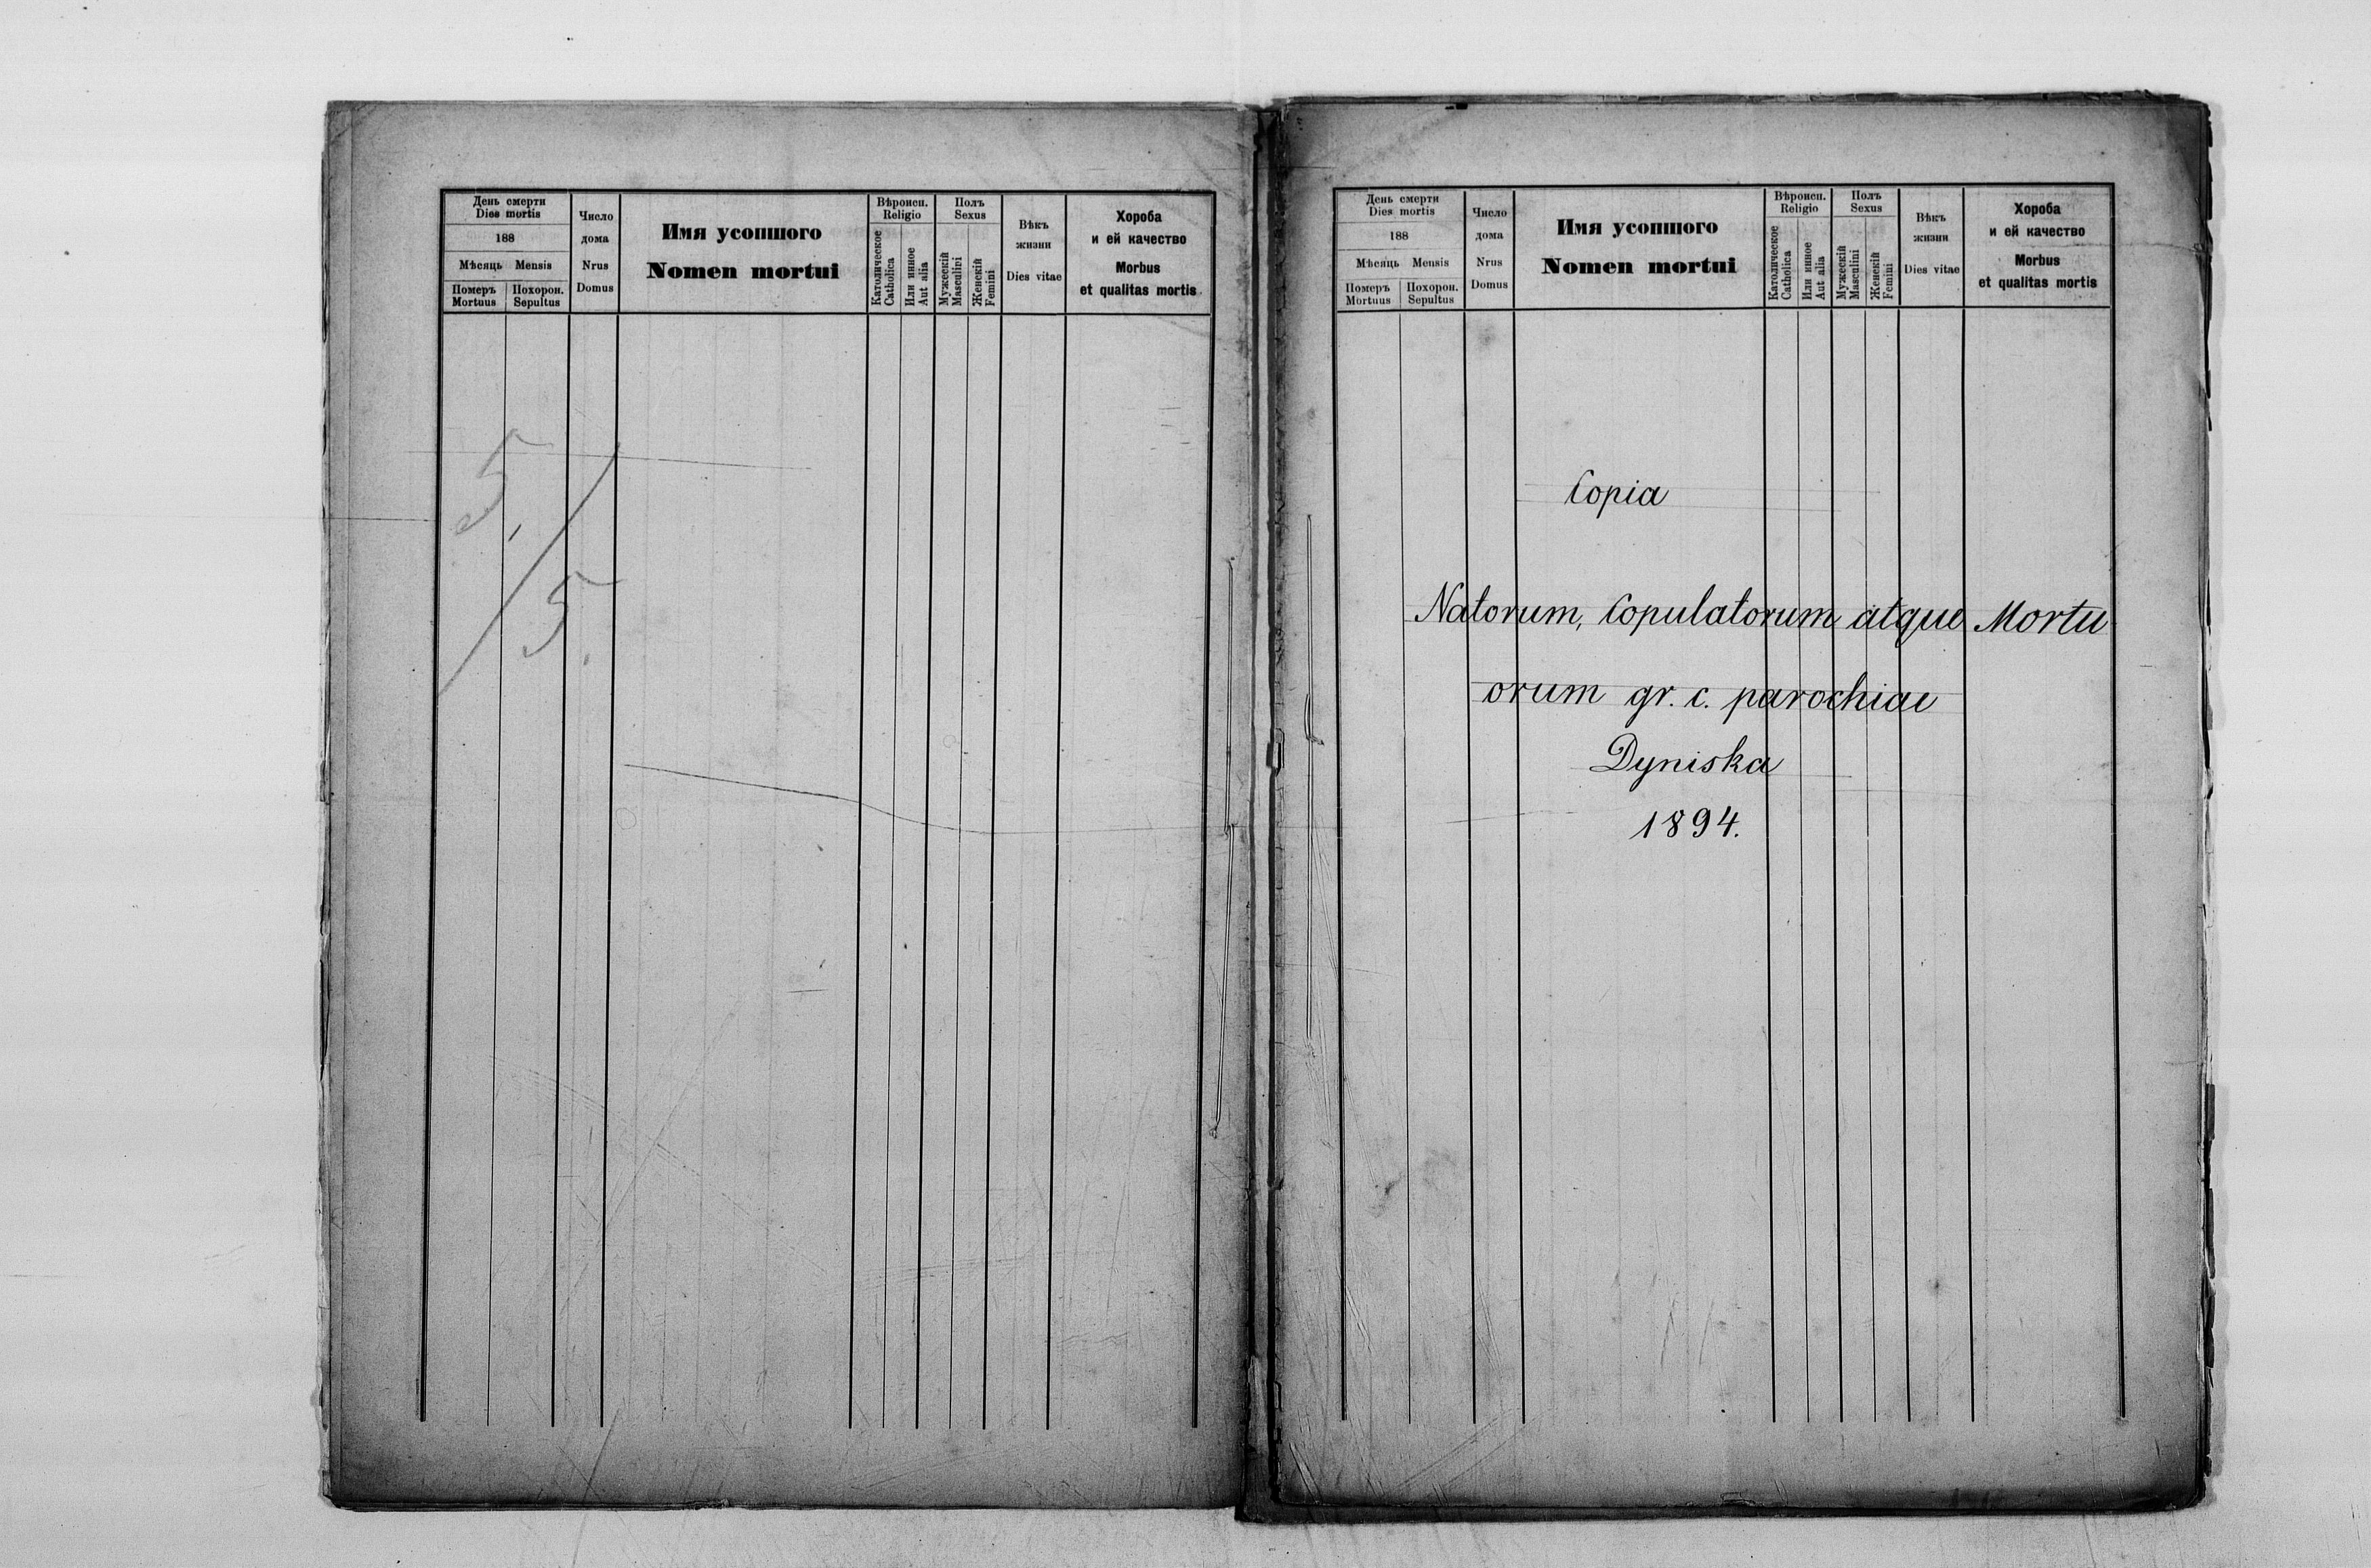 День смерти
Dies mortis
188
Мѣсяць Mensis
Померъ
Mortuus
Похорон.
Sepultus
Число
дома
Nrus
Domus
Имя усопшого
Nomen mortui
Вѣроисп.
Religio
Католическое
Catholica
Или инное
Aut alia
Полъ
Sexus
Мужескій
Masculini
Женскій
Femini
Вѣкъ
жизни
Dies vitae
Хороба
и ей качество
Morbus
et qualitas mortis
5,
/
5.
День смерти
Dies mortis
188
Мѣсяць Mensis
Померъ
Mortuus
Похорон.
Sepultus
Число
дома
Nrus
Domus
Имя усопшого
Nomen mortui
Вѣроисп.
Religio
Католическое
Catholica
Или инное
Aut alia
Полъ
Sexus
Мужескій
Masculini
Женскій
Femini
Вѣкъ
жизни
Dies vitae
Хороба
и ей качество
Morbus
et qualitas mortis
Copia
Natorum, Copulatorum atque Mortu
orum gr. c. parochiae
Dyniska
1894.